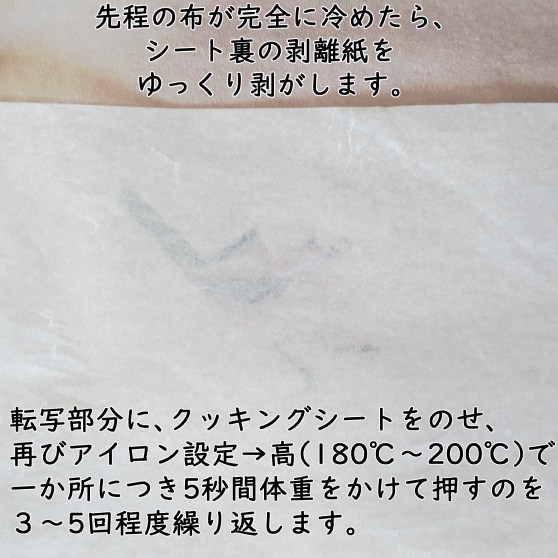 先程の布が完全に冷めたら、
シート裏の剥離紙を
ゆっくり剥がします。
転写部分に、クッキングシートをのせ、
再びアイロン設定→高(180℃～200℃)で
一か所につき5秒間体重をかけて押すのを
３～5回程度繰り返します。